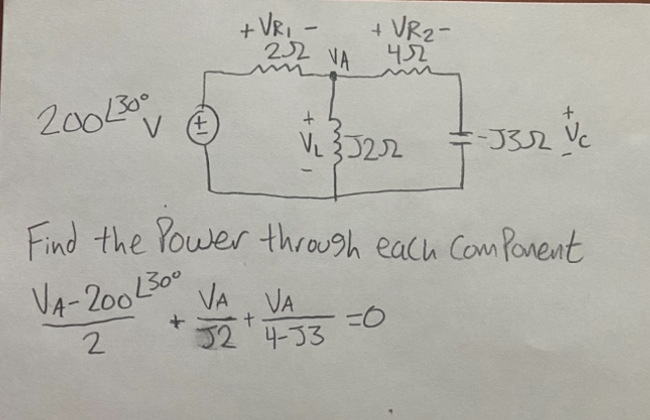 + VR1 - + VR2 -
2Ω VA 4Ω
200∠30° V
+ VL - J2Ω
-J3Ω + VC -
Find the Power through each ComPonent
VA-200∠30° / 2 + VA / J2 + VA / 4-J3 =0